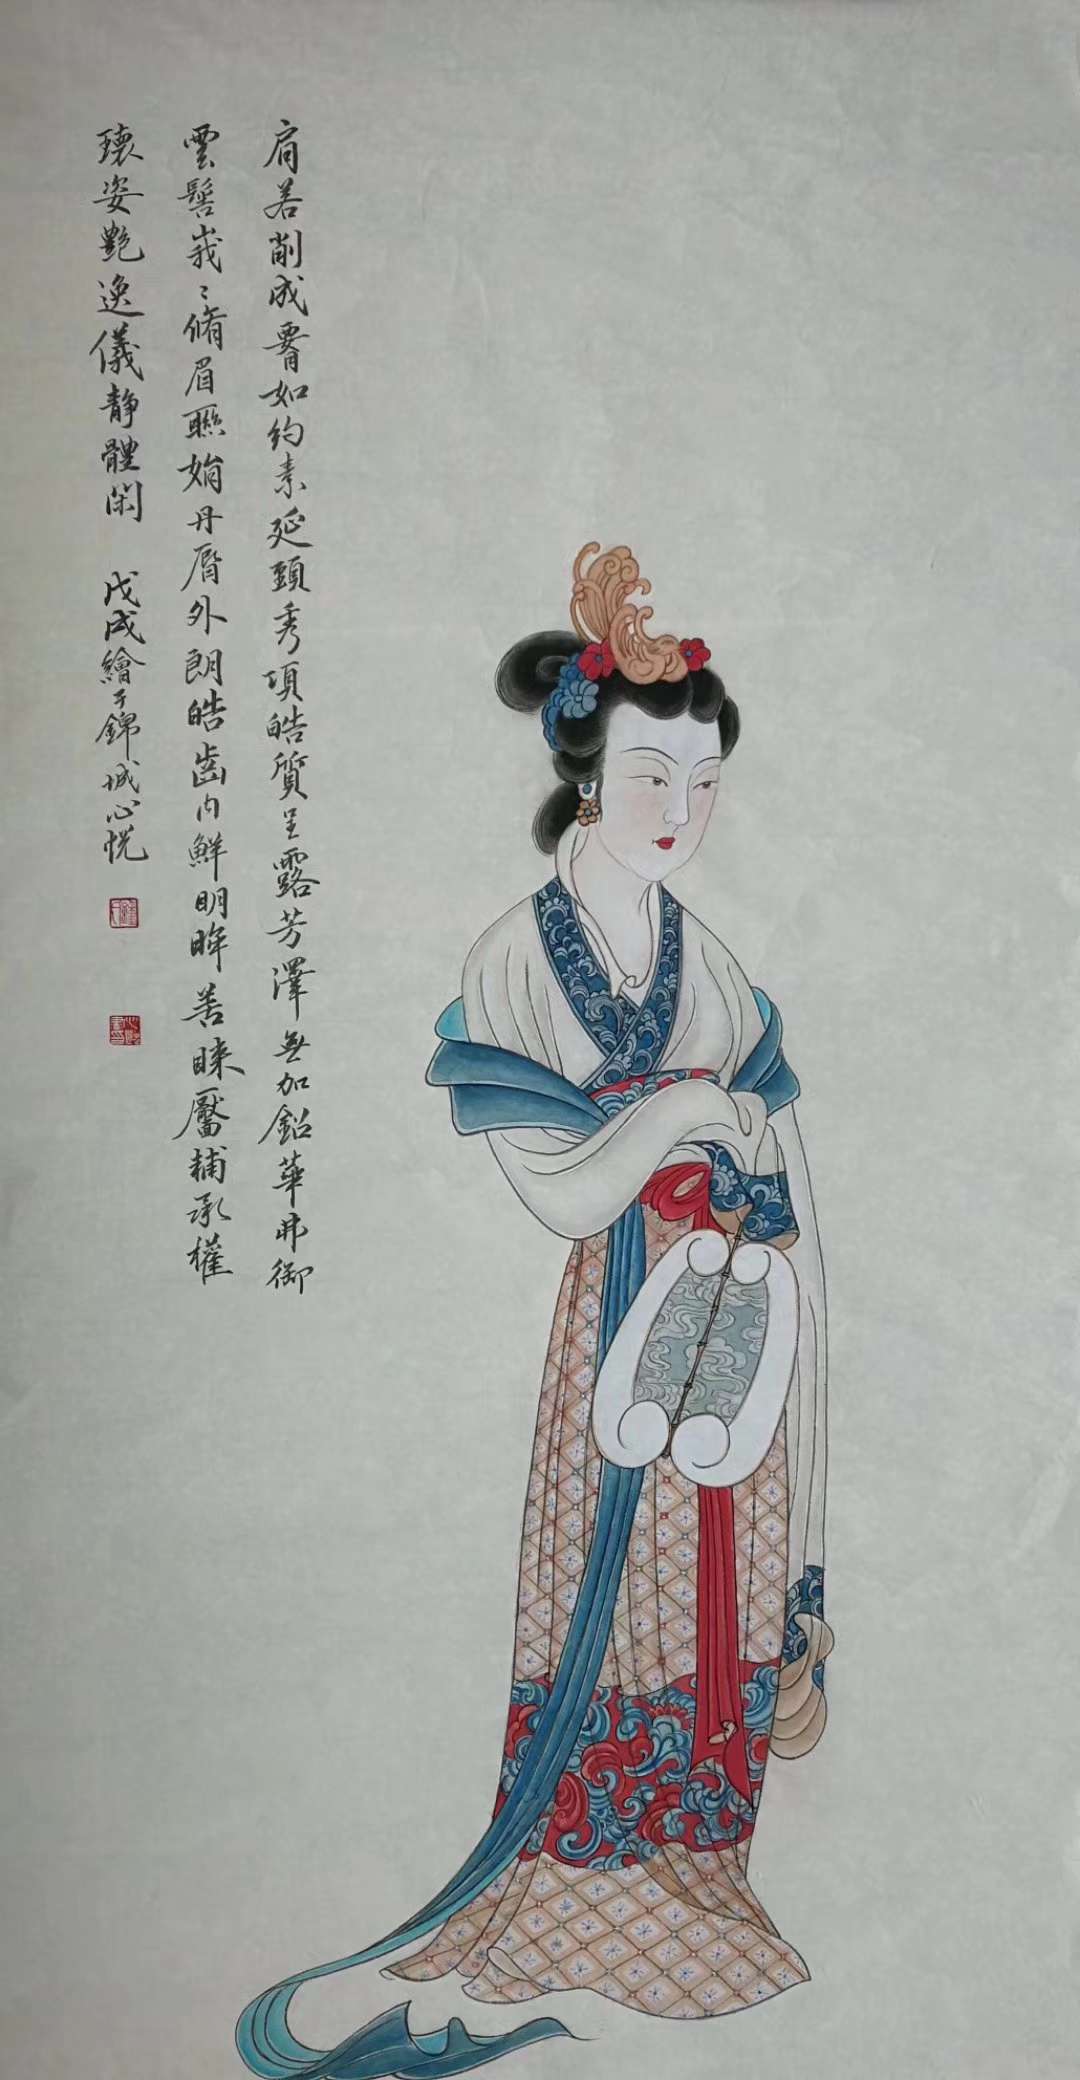 肩若削成䙅如約素延頸秀項皓質呈露芳澤無加鉛華弗御
雲髻峩〻脩眉聯娟丹脣外朗皓齒内鮮明眸善睞靨輔承權
瓌姿艷逸儀静體閑 戊戌繪于錦城心悦